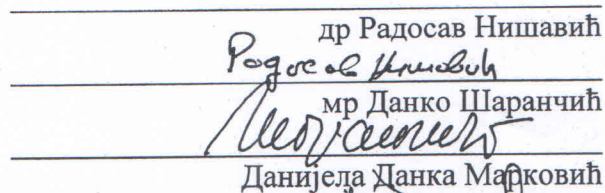 др Радосав Нишавић
Радосав Нишавић
мр Данко Шаранчић
Данијела Данка Марковић